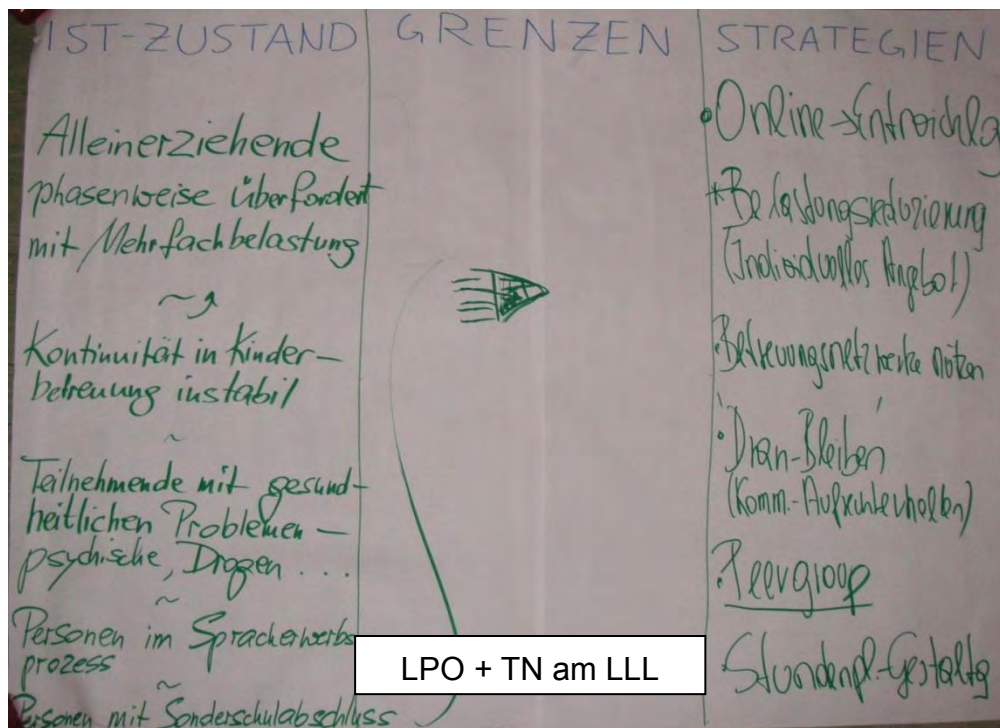 IST-ZUSTAND
Alleinerziehende
phasenweise überfordert
mit Mehrfachbelastung
Kontinuität in Kinder-
betreuung instabil
Teilnehmende mit gesund-
heitlichen Problemen –
psychische, Drogen ....
Personen im Spracherwerbs
prozess
Personen mit Sonderschulabschluss
GRENZEN
STRATEGIEN
Online →
*Belastungsreduzierung
(Individuelles Angebot)
Betreuungsnetzwerke nützen
Dran-Bleiben
(Komm.-Aufrechterhalten)
Peergroup
Stundenpl.-Gestaltg
LPO + TN am LLL